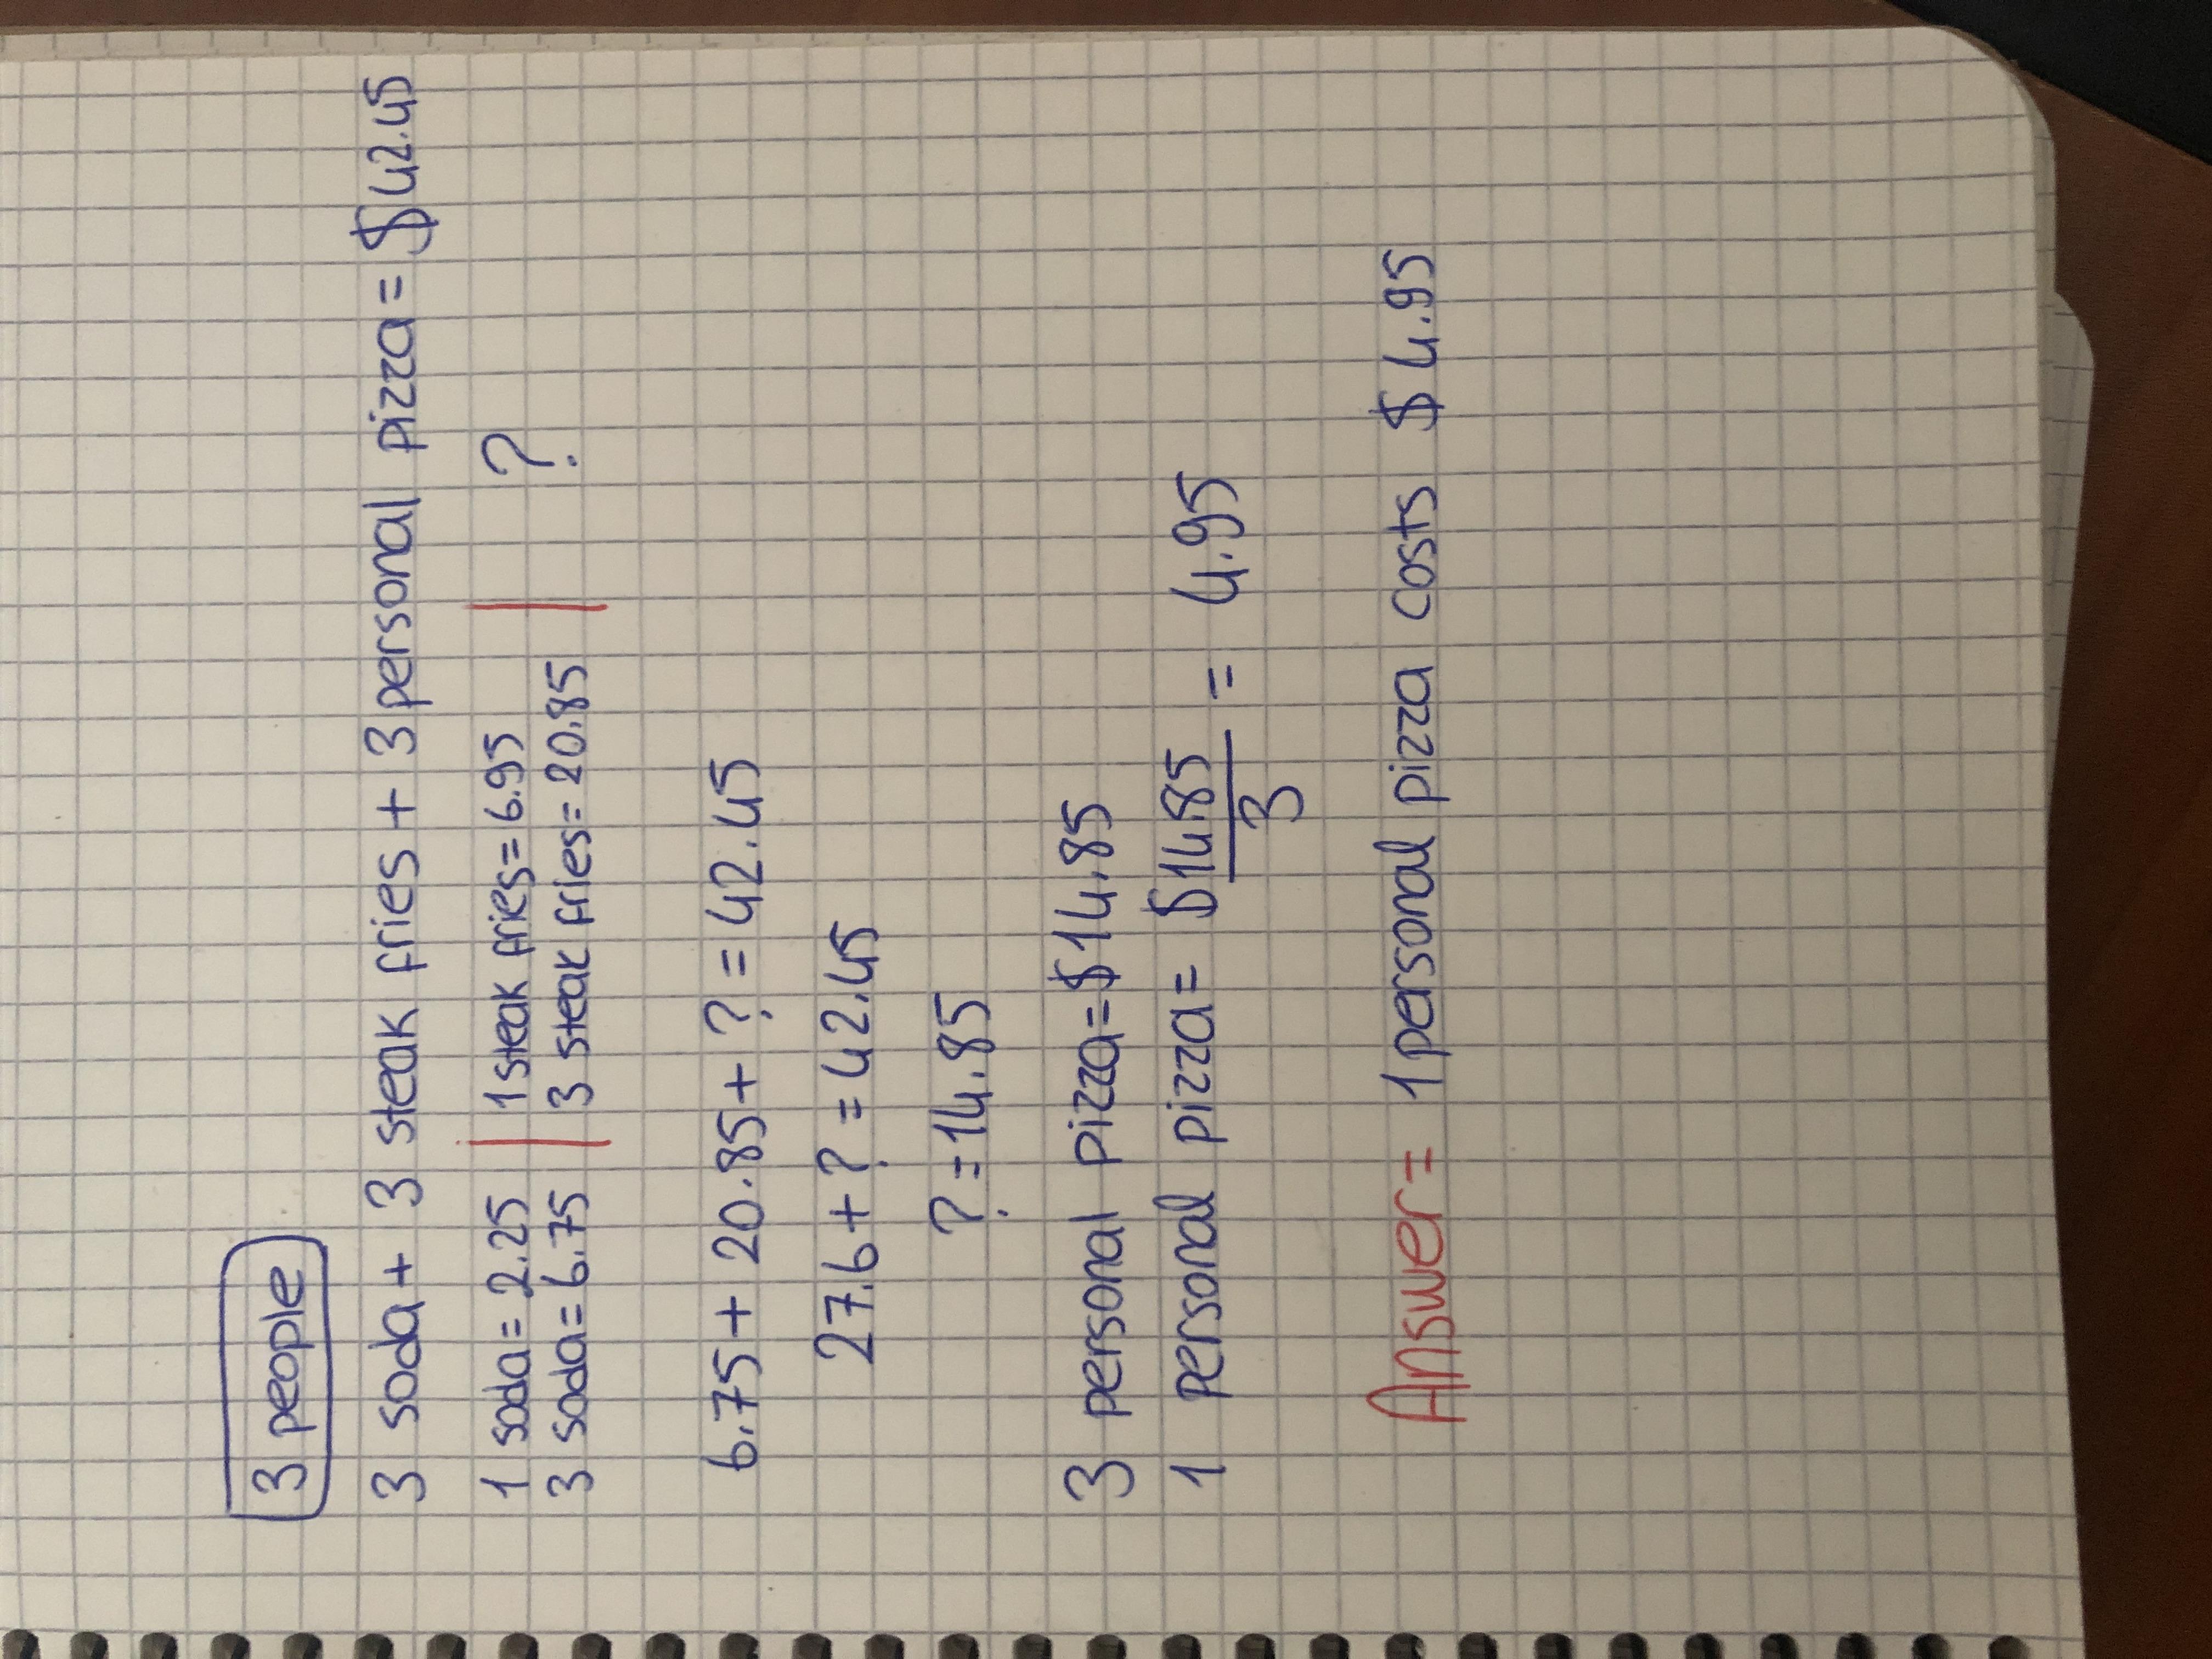 3 people
3 soda + 3 steak fries + 3 personal pizza = $42.45
1 soda = 2.25 | 1 steak fries = 6.95 | ?
3 soda = 6.75 | 3 steak fries = 20.85 |
6.75 + 20.85 + ? = 42.45
27.6 + ? = 42.45
? = 14.85
3 personal pizza = $14.85
1 personal pizza = $14.85 / 3 = 4.95
Answer = 1 personal pizza costs $4.95